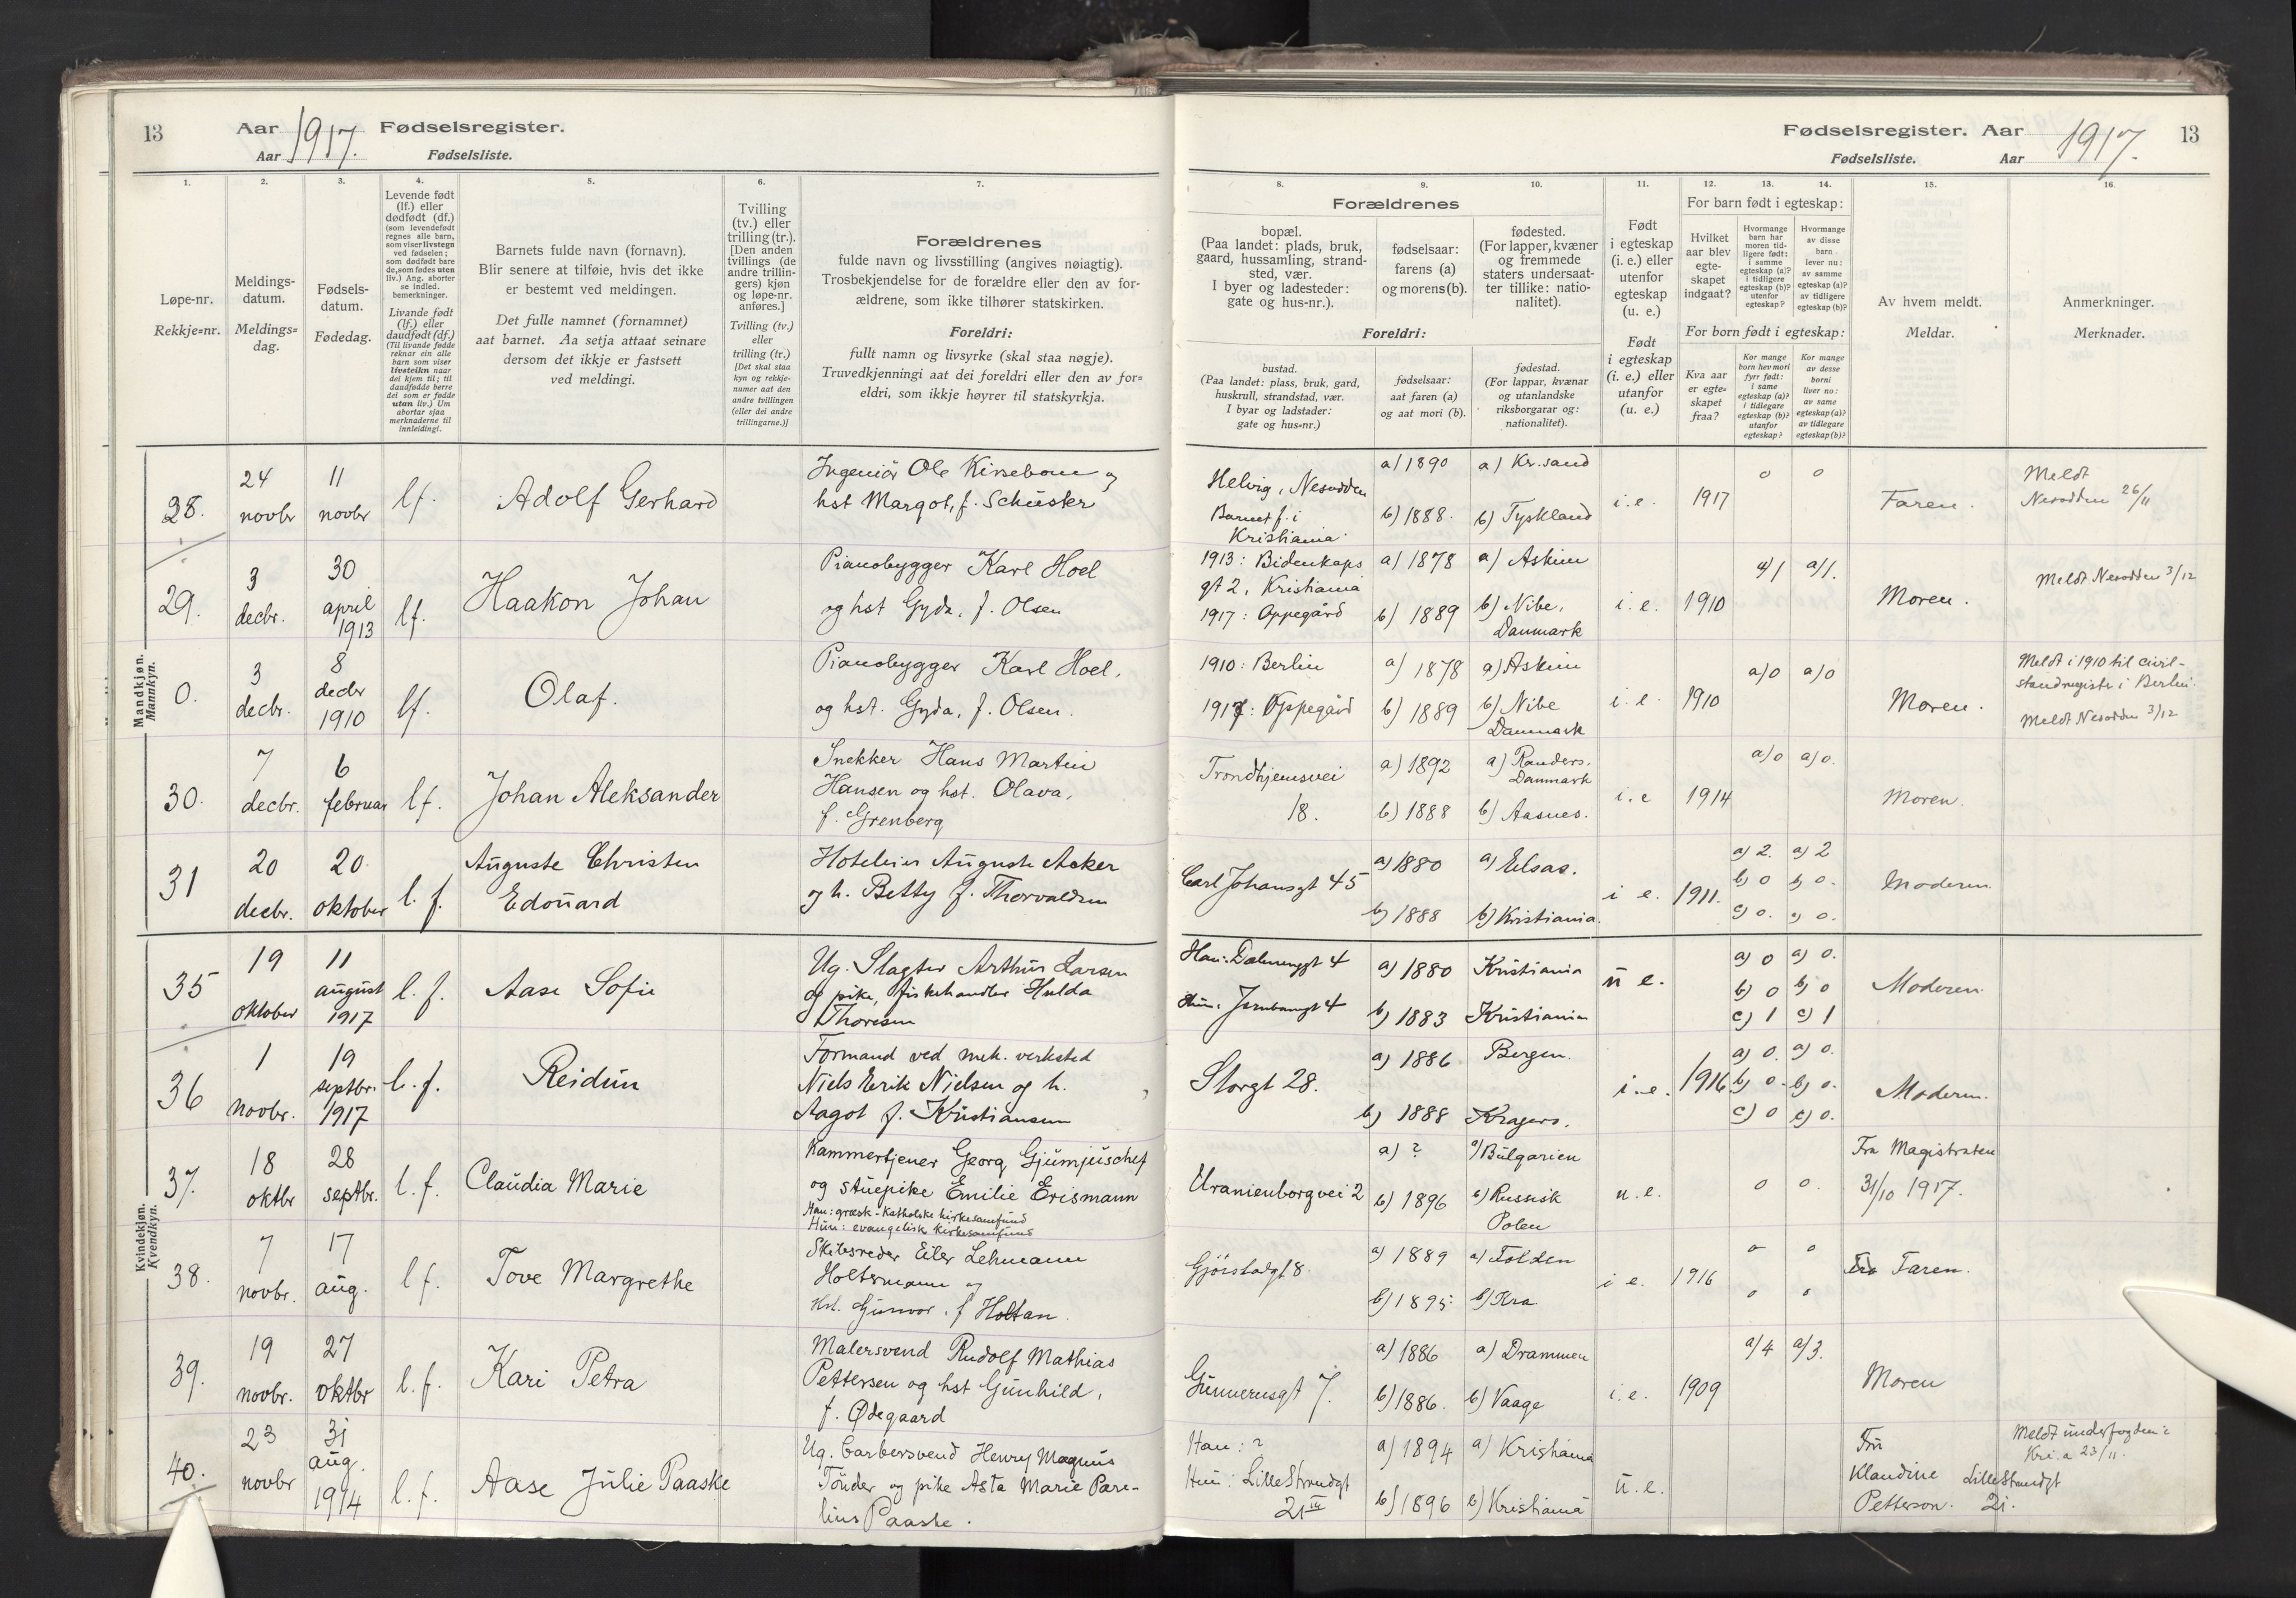 13
Aar 1917. Fødselsregister.
Aar Fødselsliste.
1.
2.
3.
4.
5.
6.
7.
Løpe-nr.
Rekkje=nr.
Meldings-
datum.
Meldings=
dag.
Fødsels-
datum.
Fødedag.
Levende født
(lf.) eller
dødfødt (df.)
(som levendefødt
regnes alle barn,
som viser livstegn
ved fødselen;
som dødfødt bare
de, som fødes uten
liv.) Ang. aborter
se indled.
bemerkninger.
Livande født
(lf.) eller
daudfødt (df.)
(Til livande fødde
reknar ein alle
barn som viser
livsteikn naar
dei kjem til; til
daudfødde berre
dei som er fødde
utan liv.) Um
abortar sjaa
merknaderne til
innleidingi.
Barnets fulde navn (fornavn).
Blir senere at tilføie, hvis det ikke
er bestemt ved meldingen.
Det fulle namnet (fornamnet)
aat barnet. Aa setja attaat seinare
dersom det ikkje er fastsett
ved meldingi.
Tvilling
(tv.) eller
trilling (tr.).
[Den anden
tvillings (de
andre trillin-
gers) kjøn
og løpe-nr.
anføres.]
Tvilling (tv.)
eller
trilling (tr.)
[Det skal staa
kyn og rekkje-
numer aat den
andre tvillingen
(eller dei andre
trillingarne.)]
Forældrenes
fulde navn og livsstilling (angives nøiagtig).
Trosbekjendelse for de forældre eller den av for-
ældrene, som ikke tilhører statskirken.
Foreldri:
fullt namn og livsyrke (skal staa nøgje).
Truvedkjenningi aat dei foreldri eller den av for=
eldri, som ikkje høyrer til statskyrkja.
Mandkjøn.
Mannkyn.
28.
24
novbr
11
novbr
lf.
Adolf Gerhard
Ingeniør Ole Kirsebom og
hst Margot, f. Schuster
29.
3
decbr.
30
april
1913
lf.
Haakon Johan
Pianobygger Karl Hoel
og hst Gyda, f. Olsen
0.
3
decbr.
8
decbr
1910
lf.
Olaf.
Pianobygger Karl Hoel,
og hst. Gyda, f. Olsen.
30.
7
decbr.
6
februar
lf.
Johan Aleksander
Snekker Hans Martin
Hansen og hst. Olava,
f. Grenberg
31
20
decbr.
20
oktober
l. f.
Auguste Christen
Edouard
Hoteleier Auguste Acker
og h. Betty f. Thorvaldsen
Kvindekjøn.
Kvendkyn.
35
19
oktober
11
august
1917
l. f.
Aase Sofie
Ug. Slagter Arthur Larsen
og pike, fiskehandler Hulda
Thoresen
36
1
novbr.
19
septbr.
1917
l. f.
Reidun
Formand ved mek. verksted
Niels Erik Nielsen og h.
Aagot f. Kristiansen
37.
18
oktbr
28
septbr.
l. f.
Claudia Marie
Kammertjener Georg Gjumjuschef
og stuepike Emilie Erismann
Han: græsk-katholske kirkesamfund
Hun: evangelisk kirkesamfund
38.
7
novbr.
17
aug.
l f.
Tove Margrethe
Skibsreder Eiler Lehmann
Holtermann og
Hst. Gunvor, f Holtan
39.
19
novbr.
27
oktbr
l. f.
Kari Petra
Malersvend Rudolf Mathias
Pettersen og hst Gunhild,
f. Ødegaard
40.
23
novbr
31
aug.
1914
l. f.
Aase Julie Paaske
Ug. barbersvend Henry Magnus
Tönder og pike Asta Marie Pare-
lius Paaske.
Fødselsregister. Aar 1917. 13
Fødselsliste. Aar
8.
9.
10.
11.
12.
13.
14.
15.
16.
Forældrenes
bopæl.
(Paa landet: plads, bruk,
gaard, hussamling, strand-
sted, vær.
I byer og ladesteder:
gate og hus-nr.).
fødselsaar:
farens (a)
og morens (b).
fødested.
(For lapper, kvæner
og fremmede
staters undersaat-
ter tillike: natio-
nalitet).
Foreldri:
bustad.
(Paa landet: plass, bruk, gard,
huskrull, strandstad, vær.
I byar og ladstader:
gate og hus=nr.)
fødselsaar:
aat faren (a)
og aat mori (b).
fødestad.
(For lappar, kvænar
og utanlandske
riksborgarar og:
nationalitet).
Født
i egteskap
(i. e.) eller
utenfor
egteskap
(u. e.)
Født
i egteskap
(i. e.) eller
utanfor
(u. e.)
For barn født i egteskap:
Hvilket
aar blev
egte-
skapet
indgaat?
Hvormange
barn har
moren tid-
ligere født:
i samme
egteskap (a)?
i tidligere
egteskap (b)?
utenfor
egteskap?
Hvormange
av disse
barn
lever nu:
av samme
egteskap (a)?
av tidligere
egteskap (b)?
For born født i egteskap:
Kva aar
er egte=
skapet
fraa?
Kor mange
born hev mori
fyrr født:
i same
egteskap (a)?
i tidlegare
egteskap (b)?
utanfor
egteskap?
Kor mange
av desse
borni
liver no:
av same
egteskap (a)?
av tidlegare
egteskap (b)?
Av hvem meldt.
Meldar.
Anmerkninger.
Merknader.
Helvig, Nesodden
Barnet f. i
Kristiania
a) 1890
b) 1888.
a) Kr.sand
b) Tyskland
i. e.
1917
0
0
Faren.
Meldt
Nesodden 26/11
1913: Bidenkaps
gt 2, Kristiania
1917: Oppegård
a) 1878
b) 1889
a) Askim
b) Nibe,
Danmark
i. e.
1910
a/1
a/1.
Moren.
Meldt Nesodden 3/12
1910: Berlin
1917: Oppegård
a) 1878
b) 1889
a) Askim
b) Nibe
Danmark
i. e
1910
a/0
a/0
Moren.
Meldt i 1910 til civil-
standregistr i Berlin.
Meldt Nesodden 3/12
Trondhjemsvei
18.
a) 1892
b) 1888
a) Randers.
Danmark
b) Aasnes.
i. e
1914
a/0
a/0.
Moren.
Carl Johansgt 45
a) 1880
b) 1888
a) Elsas.
b) Kristiania.
i e.
1911.
a) 2. a) 2
b) 0 b) 0.
c) 0. c) 0.
Moderen
Han: Dælenenggt 4
Hun: Jernbanegt 4
a) 1880
b) 1883
Kristiania
Kristiania
u e.
a) 0 a) 0.
b) 0 b) 0
c) 1 c) 1
Moderen
Storgt 28.
a) 1886
b) 1888
Bergen.
Kragerø.
i. e.
1916
a) 0. a) 0.
b) 0. b) 0.
c) 0 c) 0.
Moderen.
Uranienborgvei 2
a) ?
b) 1896
a) Bulgarien
b) Russisk
Polen
u. e.
0
0
Fra Magistraten
31/10 1917.
Gjörstadgt 8.
a) 1889
b) 1895
a) Folden
b) Kra
i e.
1916
0
0
0
0
Fra Faren.
Gunnerusgt 7.
a) 1886
b) 1886.
a) Drammen
b) Vaage
i. e.
1909
a/4
a/3.
Moren
Han: ?
Hun: Lille Strandgt
21 IV
a) 1894
b) 1896
a) Kristiania
b) Kristiania
u. e.
Fru
Klaudine Lille Strandgt
Petterson. 21.
Meldt underfogden i
Kri.a 23/11.